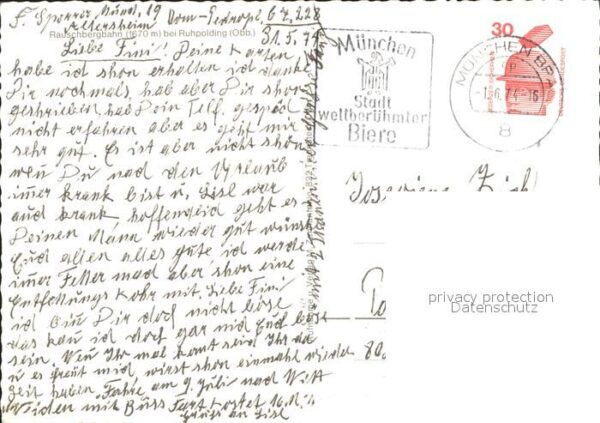 F. Sporrer Münch, 19 Dom-Pedropl, 6 Z. 228
Altersheim
Rauschbergbahn (1670 m) bei Ruhpolding (Obb.)
31. 5. 74
Liebe Fini! Deine Karten
habe ich schon erhalten ich danke
Dir nochmals, hab aber Dir schon
geschrieben, hab Dein Telf. gespäch
nicht erfahren aber es geht mir
sehr gut. Es ist aber nicht schön
wen Du nach den Urlaub
imer krank bist u, Lisl war
auch krank hoffendlich geht es
Deinen Mann wieder gut wünsche
Euch allen alles gute, ich werde
imer Fetter mach aber schon eine
Entfettungs Kohr mit. Liebe Fini
ich bin Dir doch nicht böse
das kan ich doch gar nich Euch böse
sein. Wen Ihr mal komt seid Ihr da
u es freut mich, wirst schon einmahl wieder
zeit haben. Fahre am 9. Juli nach
mit Buss Fart kostet 16. M.
Gruss an Lisl
München
Stadt
weltberühmter
Biere
MÜNCHEN BPA
-1.6.74-16
8
30
DEUTSCHE BUNDESPOST
80
privacy protection
Datenschutz